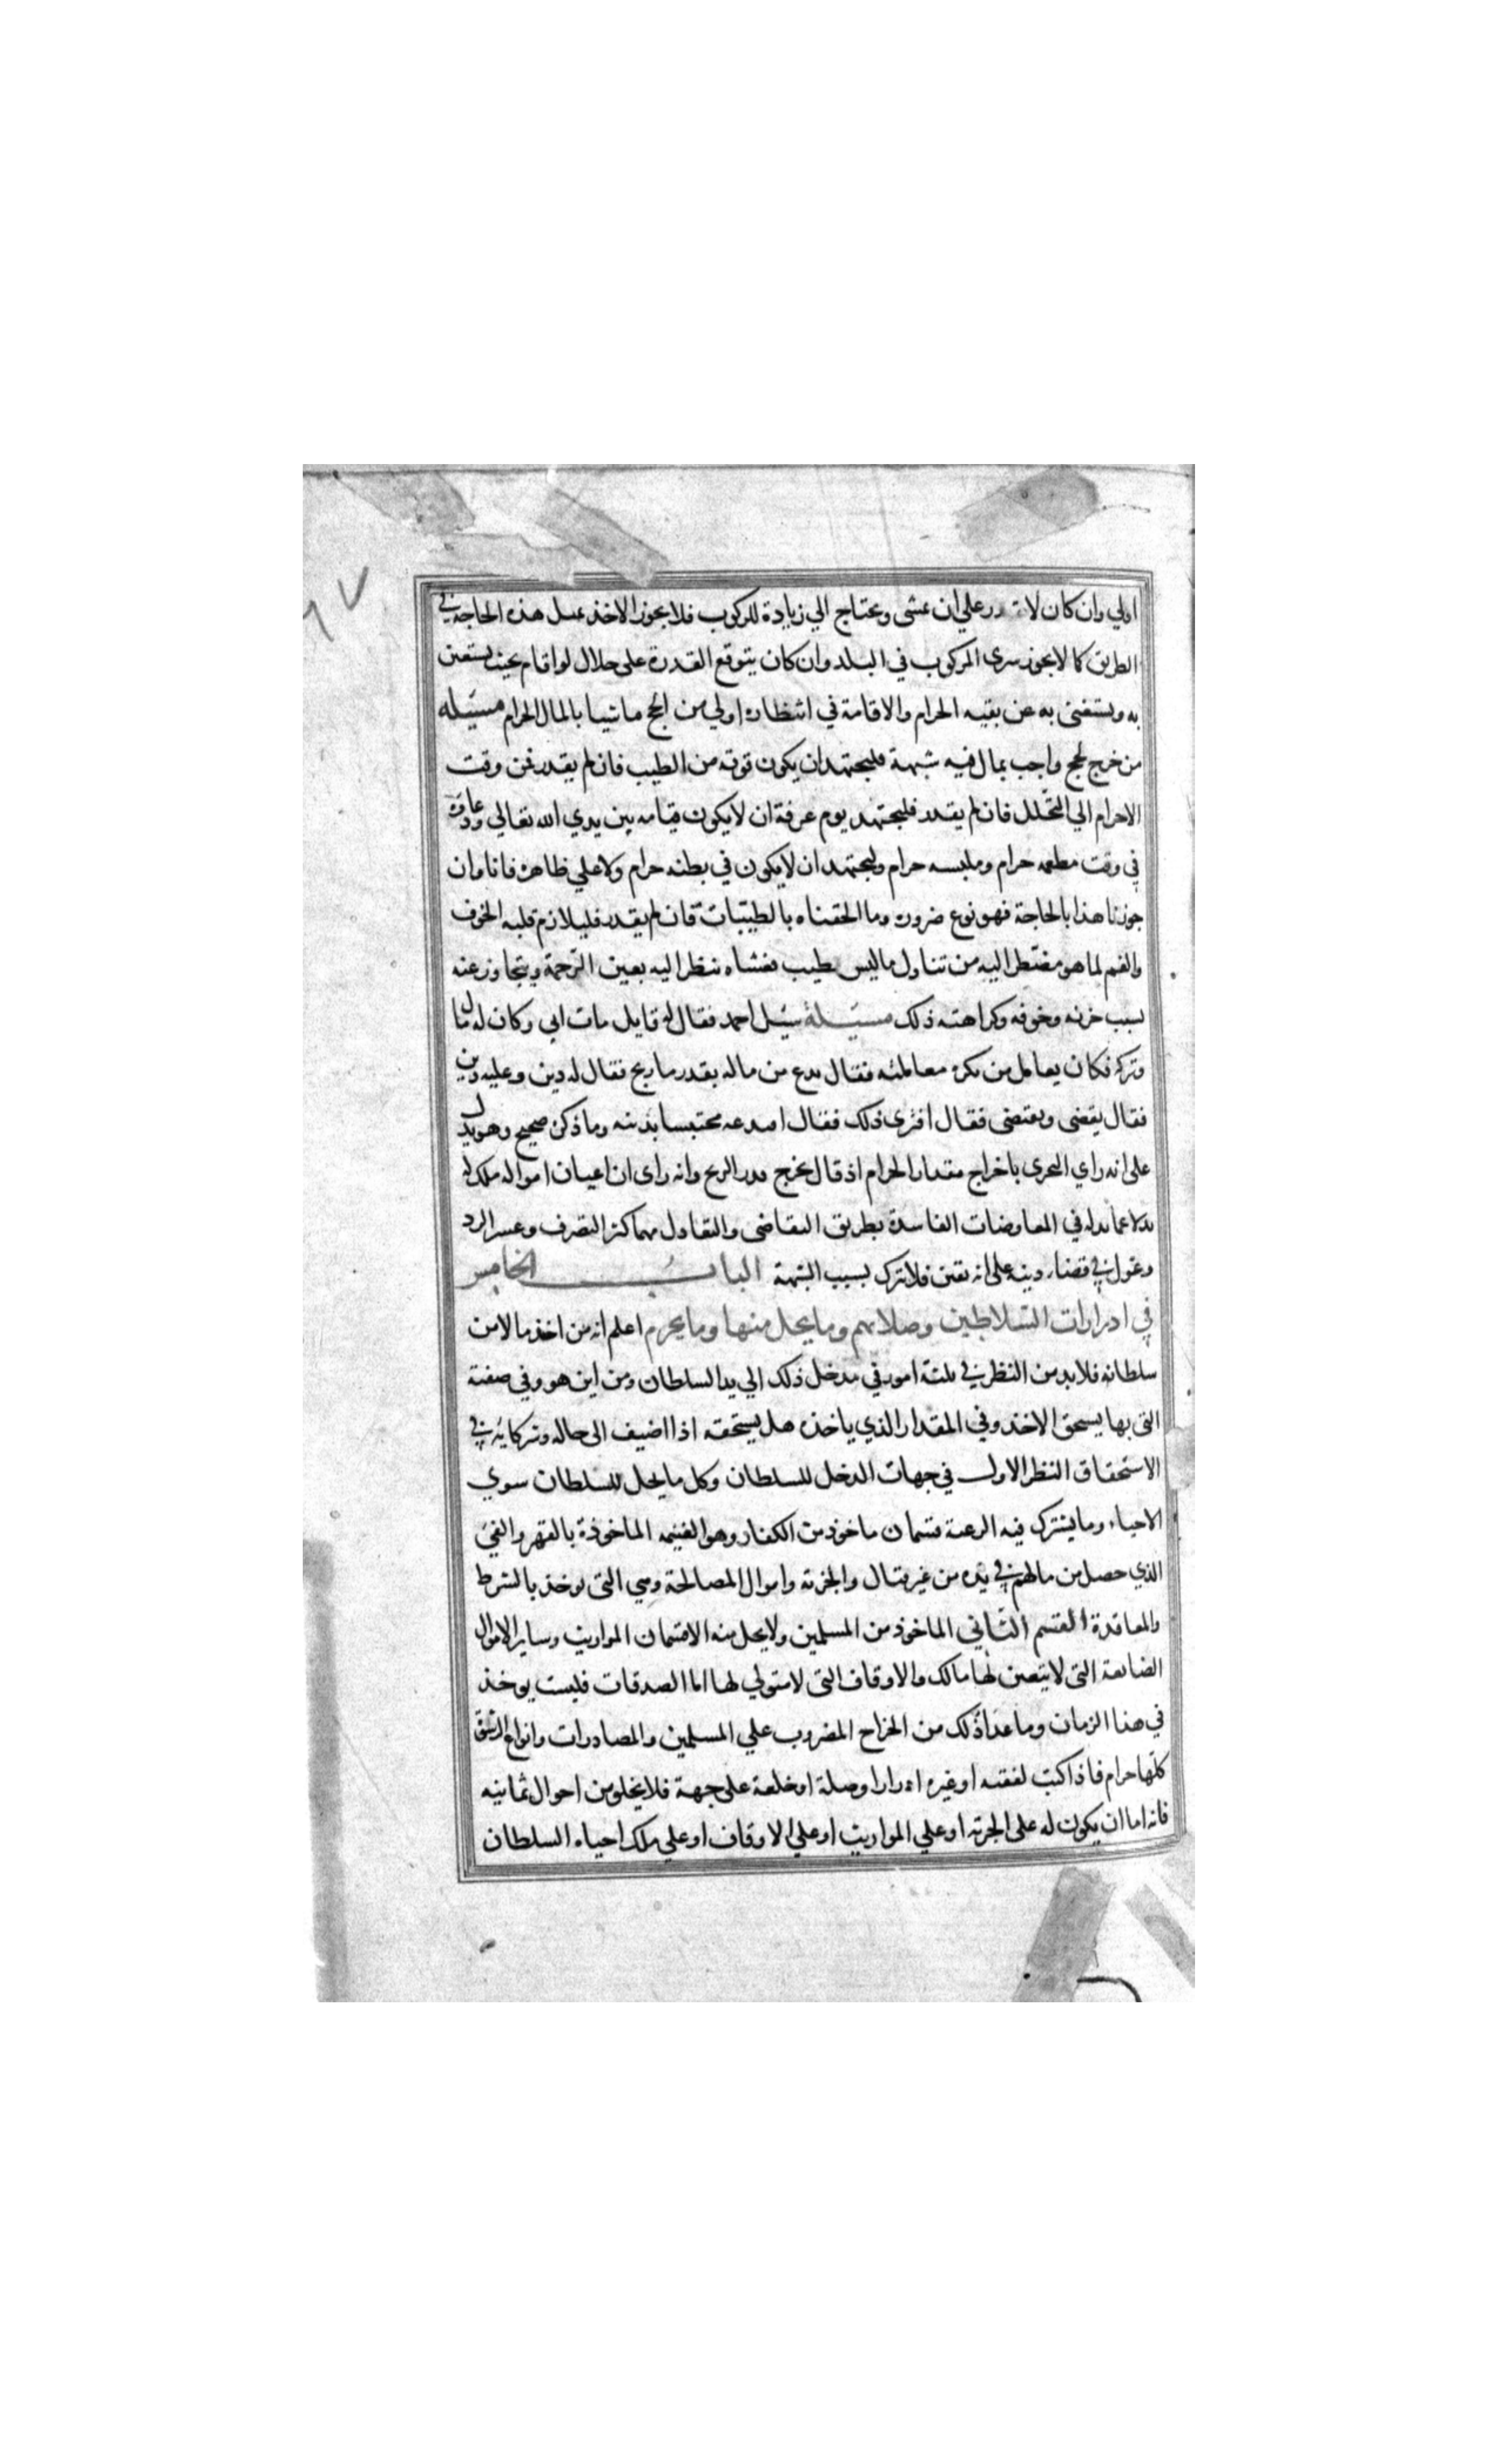 اولي وان كان لا يقدر علي ان يمشي ويحتاج الي زيادة للركوب فلا يجوز الاخذ لمثل هذه الحاجة في
الطريق كما لا يجوز شرى المركوب في البلد وان كان يتوقع القدرة على حلال لو اقام بحيث يستعين
به ويستغنى به عن بقيه الحرام والاقامة في انتظاره اولي من الحج ماشيا بالمال الحرام مسئله
من خرج لحج واجب بمال فيه شبهة فليجتهد ان يكون قوته من الطيب فان لم يقدر فمن وقت
الاحرام الي التحلل فان لم يقدر فليجتهد يوم عرفة ان لا يكون قيامه بين يدي الله تعالي ودعاؤه
في وقت مطعمه حرام وملبسه حرام وليجتهد ان لا يكون في بطنه حرام ولا علي ظاهره فانا وان
جوزنا هذا بالحاجة فهو نوع ضرورة وما الحقناه بالطيبات فان لم يقدر فليلازم قلبه الخوف
والغم لما هو مضطر اليه من تناول ما ليس بطيب فعساه ينظر اليه بعين الرحمة ويتجاوز عنه
بسبب حزنه وخوفه وكراهته ذلك مسئلة سئل احمد فقال له قايل مات ابي وكان له مال
وتركه فكان يعامل من نكره معاملته فقال تدع من ماله بقدر ما ربح فقال له دين وعليه دين
فقال يقضى ويقتضى فقال افترى ذلك فقال افتدعه محتبسا بدينه وما ذكره صحيح وهو يدل
على انه راي التحرى باخراج مقدار الحرام اذ قال يخرج قدر الربح وانه راى ان اعيان امواله ملك له
بدلا عما بذله في المعاوضات الفاسدة بطريق التقاضى والتقاول مهما كثر التصرف وعسر الرد
وعول في قضاء دينه على انه يقين فلا يترك بسبب الشبهة الباب الخامس
في ادرارات السلاطين وصلاتهم وما يحل منها وما يحرم اعلم انه من اخذ مالا من
سلطانه فلا بد من النظر في ثلثة امور في مدخل ذلك الي يد السلطان ومن اين هو وفي صفته
التى بها يستحق الاخذ وفي المقدار الذي ياخذه هل يستحقه اذا اضيف الى حاله وشركائه في
الاستحقاق النظر الاول في جهات الدخل للسلطان وكل ما يحل للسلطان سوي
الاحياء وما يشترك فيه الرعية قسمان ماخوذ من الكفار وهو الغنيمه الماخوذة بالقهر والفئ
الذي حصل من مالهم في يده من غير قتال والجزية واموال المصالحة وهي التى توخذ بالشرط
والمعاقدة القسم الثاني الماخوذ من المسلمين ولا يحل منه الا قسمان المواريث وساير الاموال
الضايعة التى لا يتعين لها مالك والاوقاف التى لا متولي لها اما الصدقات فليست يوخذ
في هذا الزمان وما عدا ذلك من الخراج المضروب علي المسلمين والمصادرات وانواع الرشوة
كلها حرام فاذا كتب لفقيه او غيره ادرارا وصلة او خلعة على جهة فلا يخلو من احوال ثمانيه
فانه اما ان يكون له على الجزية او علي المواريث او علي الاوقاف او علي ملك احياه السلطان